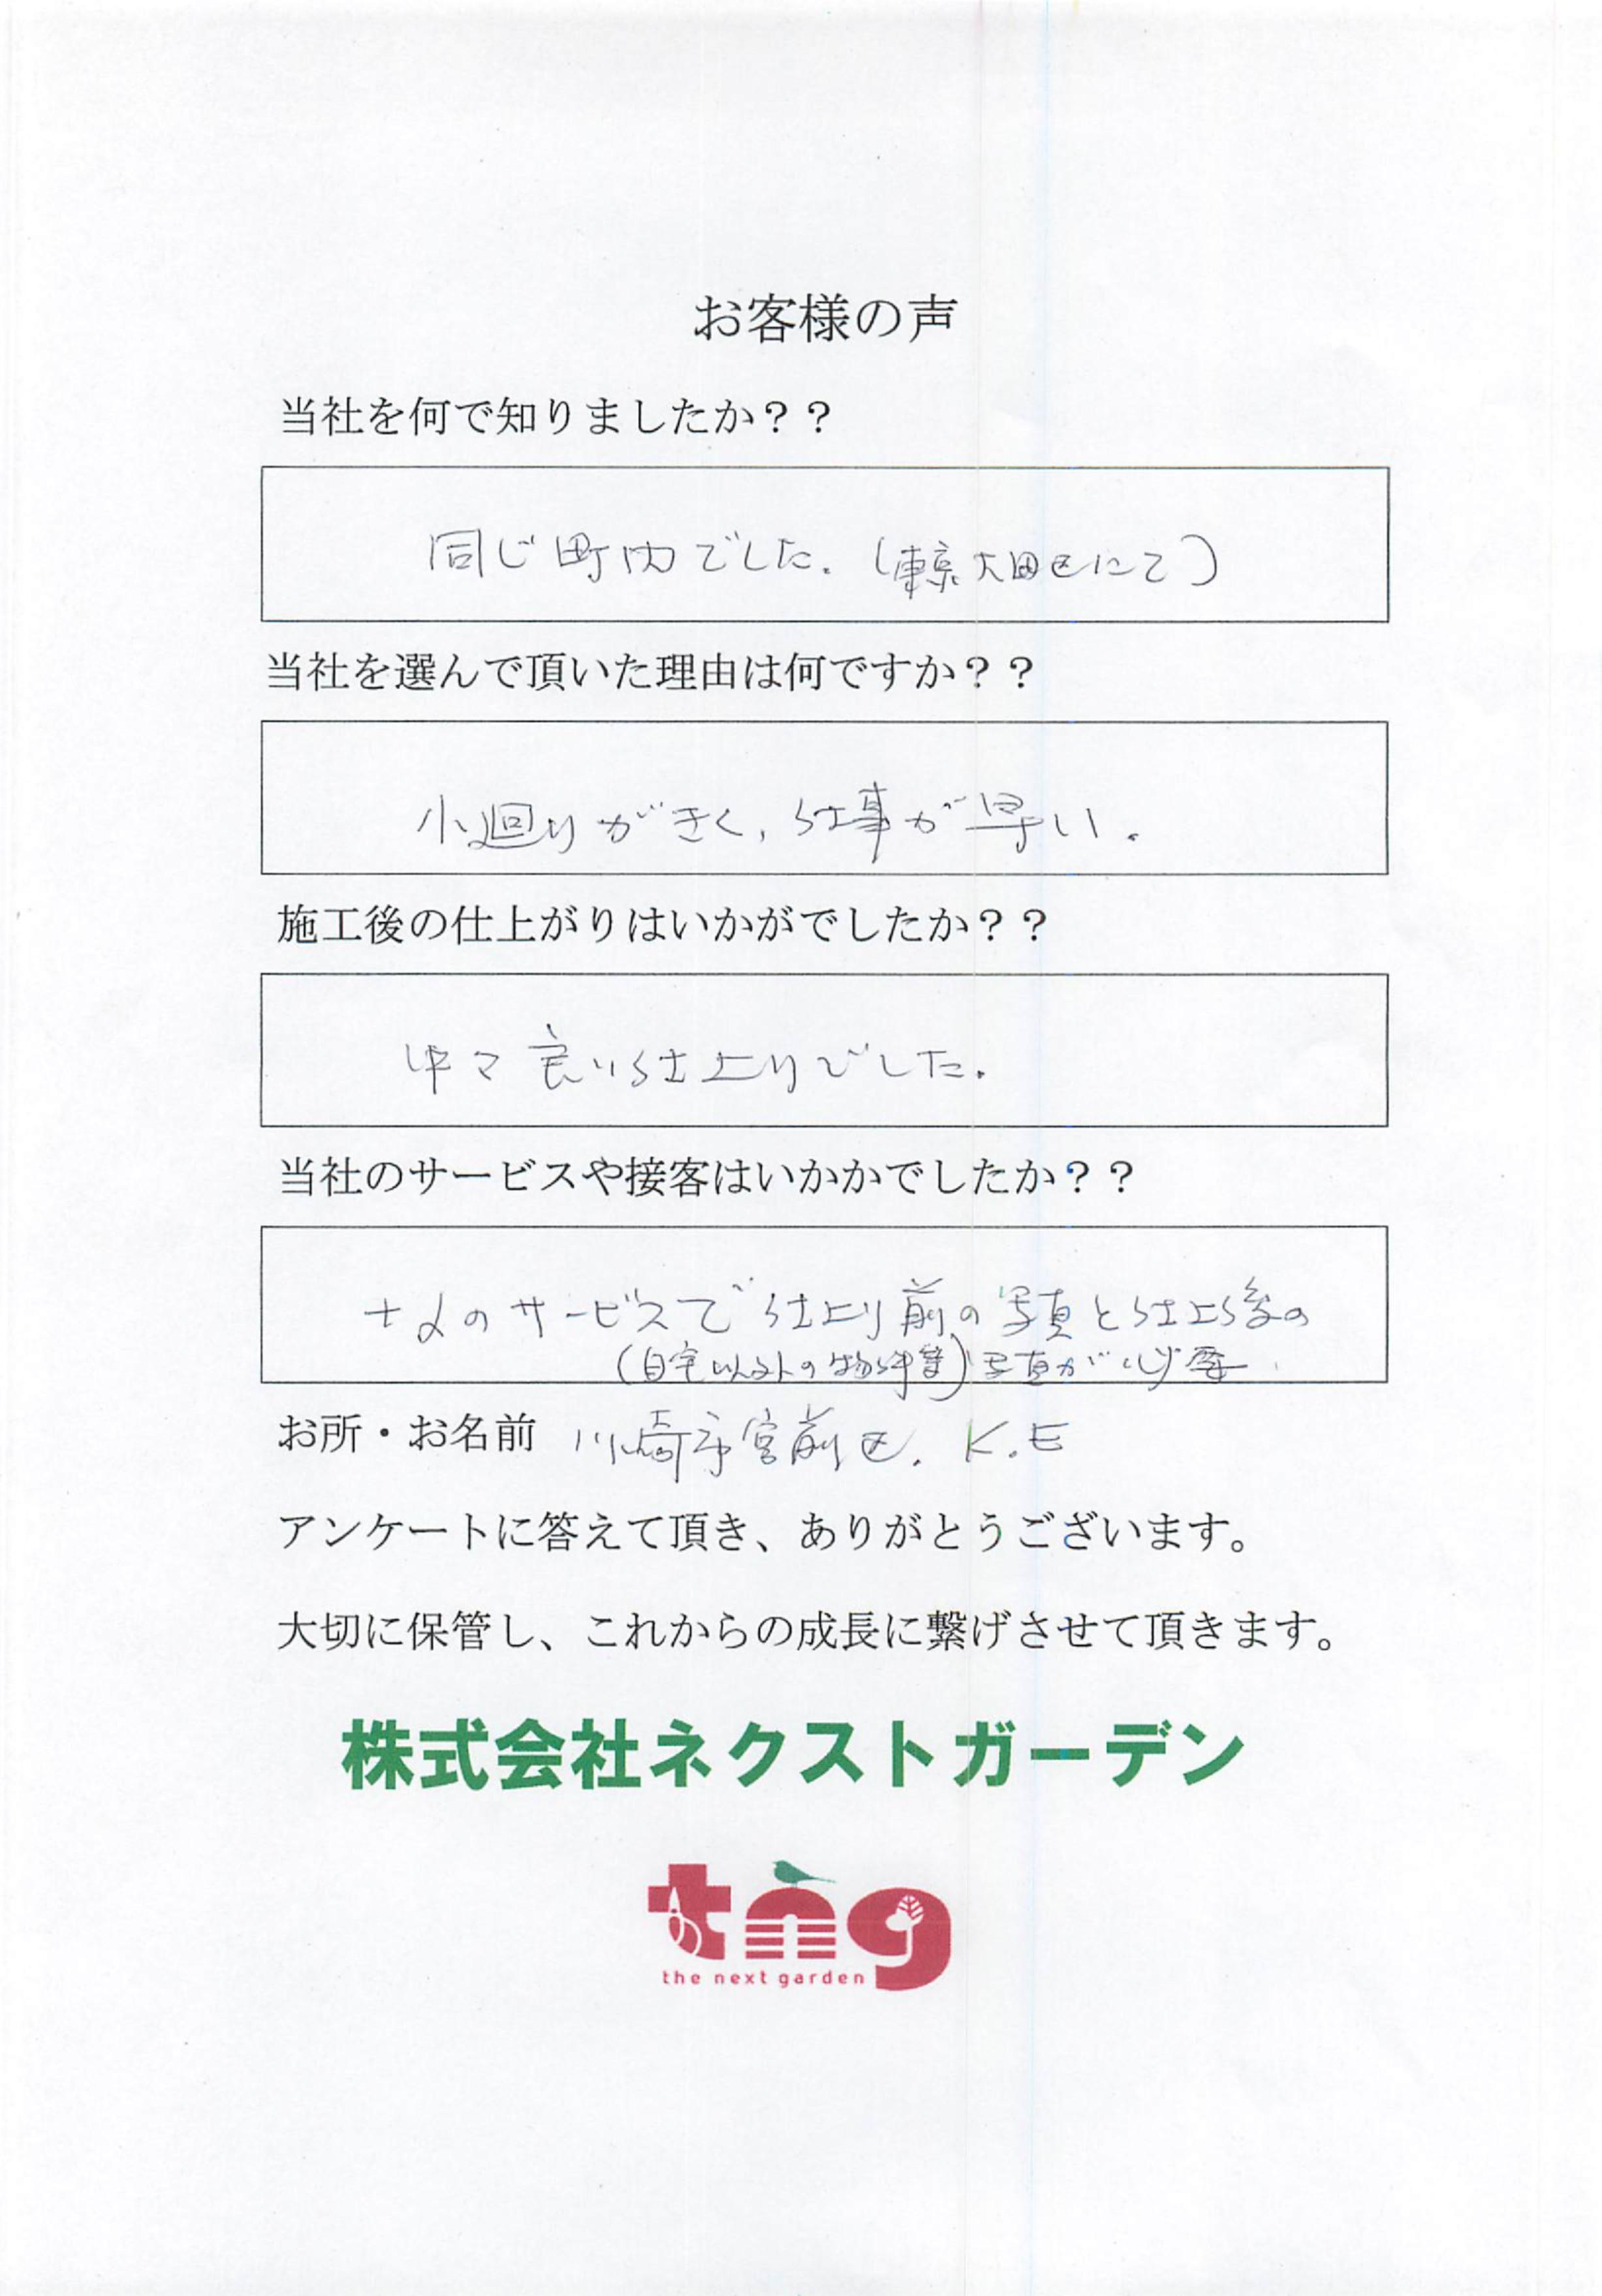 お客様の声
当社を何で知りましたか？？
同じ町内でした.(東京大田区にて)
当社を選んで頂いた理由は何ですか？？
小廻りがきく,仕事が早い.
施工後の仕上がりはいかがでしたか？？
中々良い仕上りでした.
当社のサービスや接客はいかかでしたか？？
のサービスで仕上り前の写真と仕上後の
(自宅以外の物件等)写真が必要.
お所・お名前 川崎市宮前区. K.E
アンケートに答えて頂き、ありがとうございます。
大切に保管し、これからの成長に繋げさせて頂きます。
株式会社ネクストガーデン
tng
the next garden